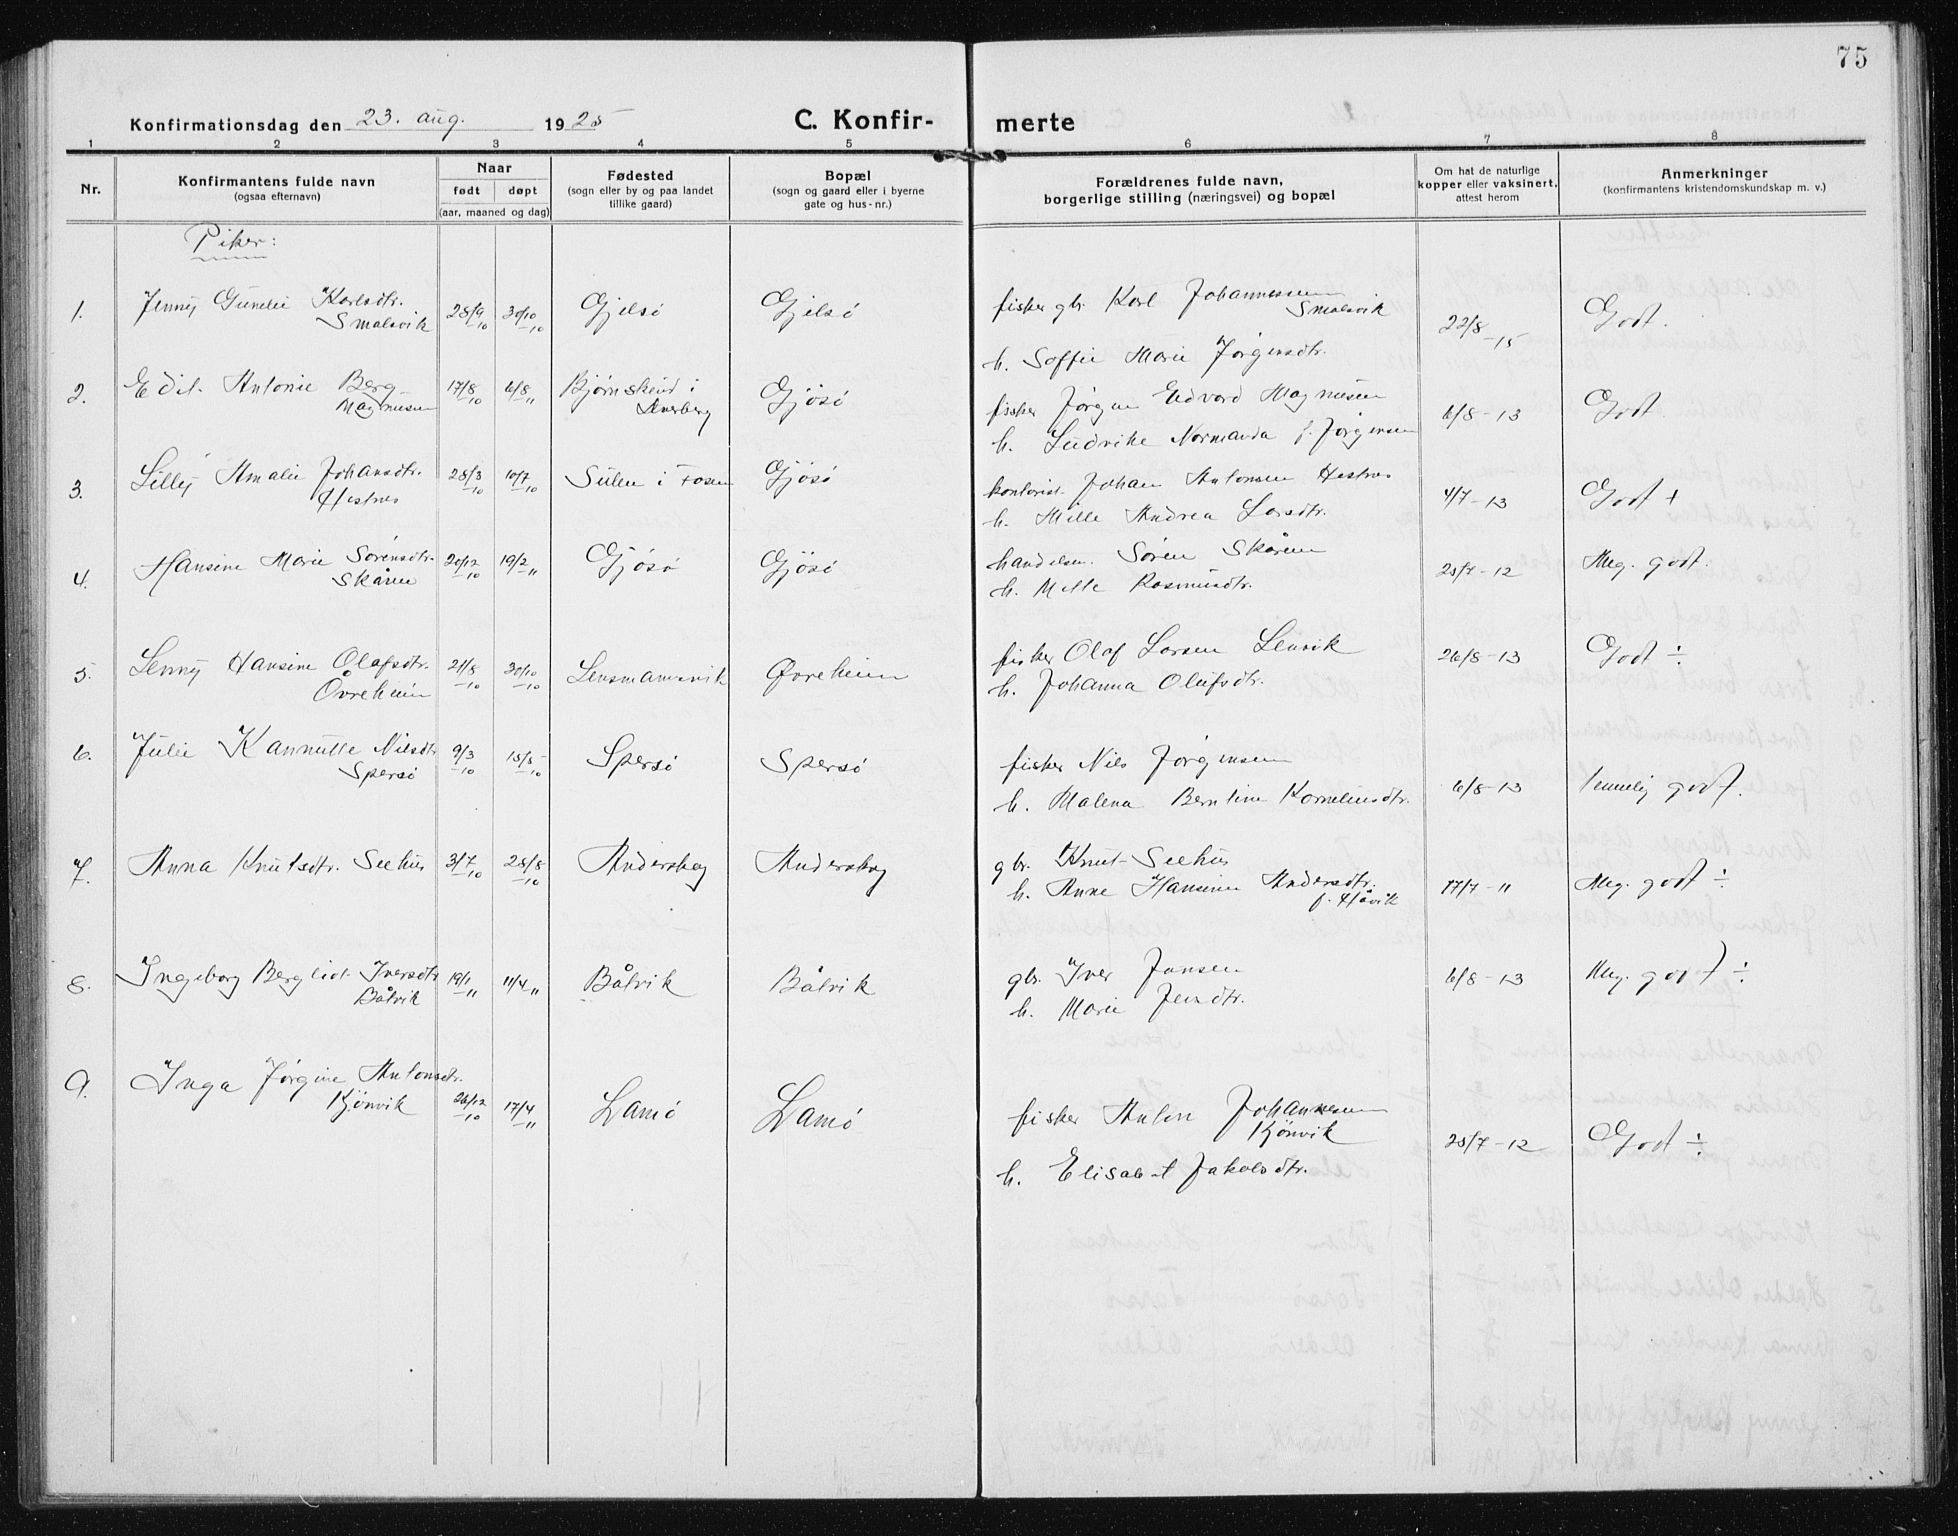 75
Konfirmationsdag den 23. aug. 1925 C. Konfir- merte
1 2 3 4 5 6 7 8
Nr.
Konfirmantens fulde navn
(ogsaa efternavn)
Naar
født døpt
(aar, maaned og dag)
Fødested
(sogn eller by og paa landet
tillike gaard)
Bopæl
(sogn og gaard eller i byerne
gate og hus-nr.)
Forældrenes fulde navn,
borgerlige stilling (næringsvei) og bopæl
Om hat de naturlige
kopper eller vaksinert,
attest herom
Anmerkninger
(konfirmantens kristendomskundskap m. v.)
Piker:
1. Jenny Karlsdtr. 28/9 30/10 Gjelsö Gjelsö fisker gbr. Karl Johannessen 22/8 Godt.
Smalsvik -10 -10 Smalsvik -15
h. Soffie Marie Jörgensdtr.
2. Edit Antonie Berg 17/8 6/8 Bjørnskind i Gjösö fisker Jörgen Edvard Magnusen 6/8-13 Godt
Magnusen -10 -" h. Ludvike Normanda f. Jörgensen
3. Lilly Amalie Johansdtr. 28/3 10/7 Sulen i Fosen Gjösö kontorist Johan Antonsen Hestnes 4/7-13 Godt +
Hestnes -10 -10 h. Mille Andrea Larsdtr.
4. Hansine Marie Sörensdtr. 20/12 19/2 Gjösö Gjösö handelsm. Sören Skåren 25/7-12 Meg. godt.
Skåren -10 -" h. Mette Rasmusdtr.
5. Lenny Hansine Olafsdtr. 21/8 30/10 Lensmansvik Øvreheim fisker Olaf Larsen Lenvik 26/8-13 Godt ÷
Övreheim -10 -10 h. Johanna Olufsdtr.
6. Julie Kannutte Nilsdtr. 9/3 15/5 Spersö Spersö fisker Nils Jörgensen 6/8-13 temmelig godt.
Spersö -10 -10 h. Malena Berntine Korneliusdtr.
7. Anna Knutsdtr. Seehus 3/7 28/8 Anderskog Anderskog gbr. Knut Seehus 17/7-" Meg. godt ÷
-10 -10 h. Anne Hansine Andersdtr.
f. Håvik
8. Ingeborg Bergliot Iversdtr 19/1 11/4 Båtvik Båtvik gbr. Iver Jansen 6/8-13 Meg. godt ÷
Båtvik -" -" h. Marie Jensdtr.
9. Inga Jörgine Antonsdtr. 26/12 17/4 Lamö Lamö fisker Anton Johannesen 25/7-12 Godt ÷
Kjönvik -10 -" Kjönvik
h. Elisabet Jakobsdtr.